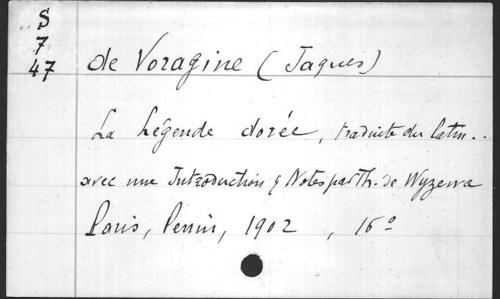 S
7
47
de Voragine (Jaques)
La Légende dorée, traduite du latin..
avec une Introduction & Notes par Th. de Wyzewa
Paris, Perrin, 1902, 16º